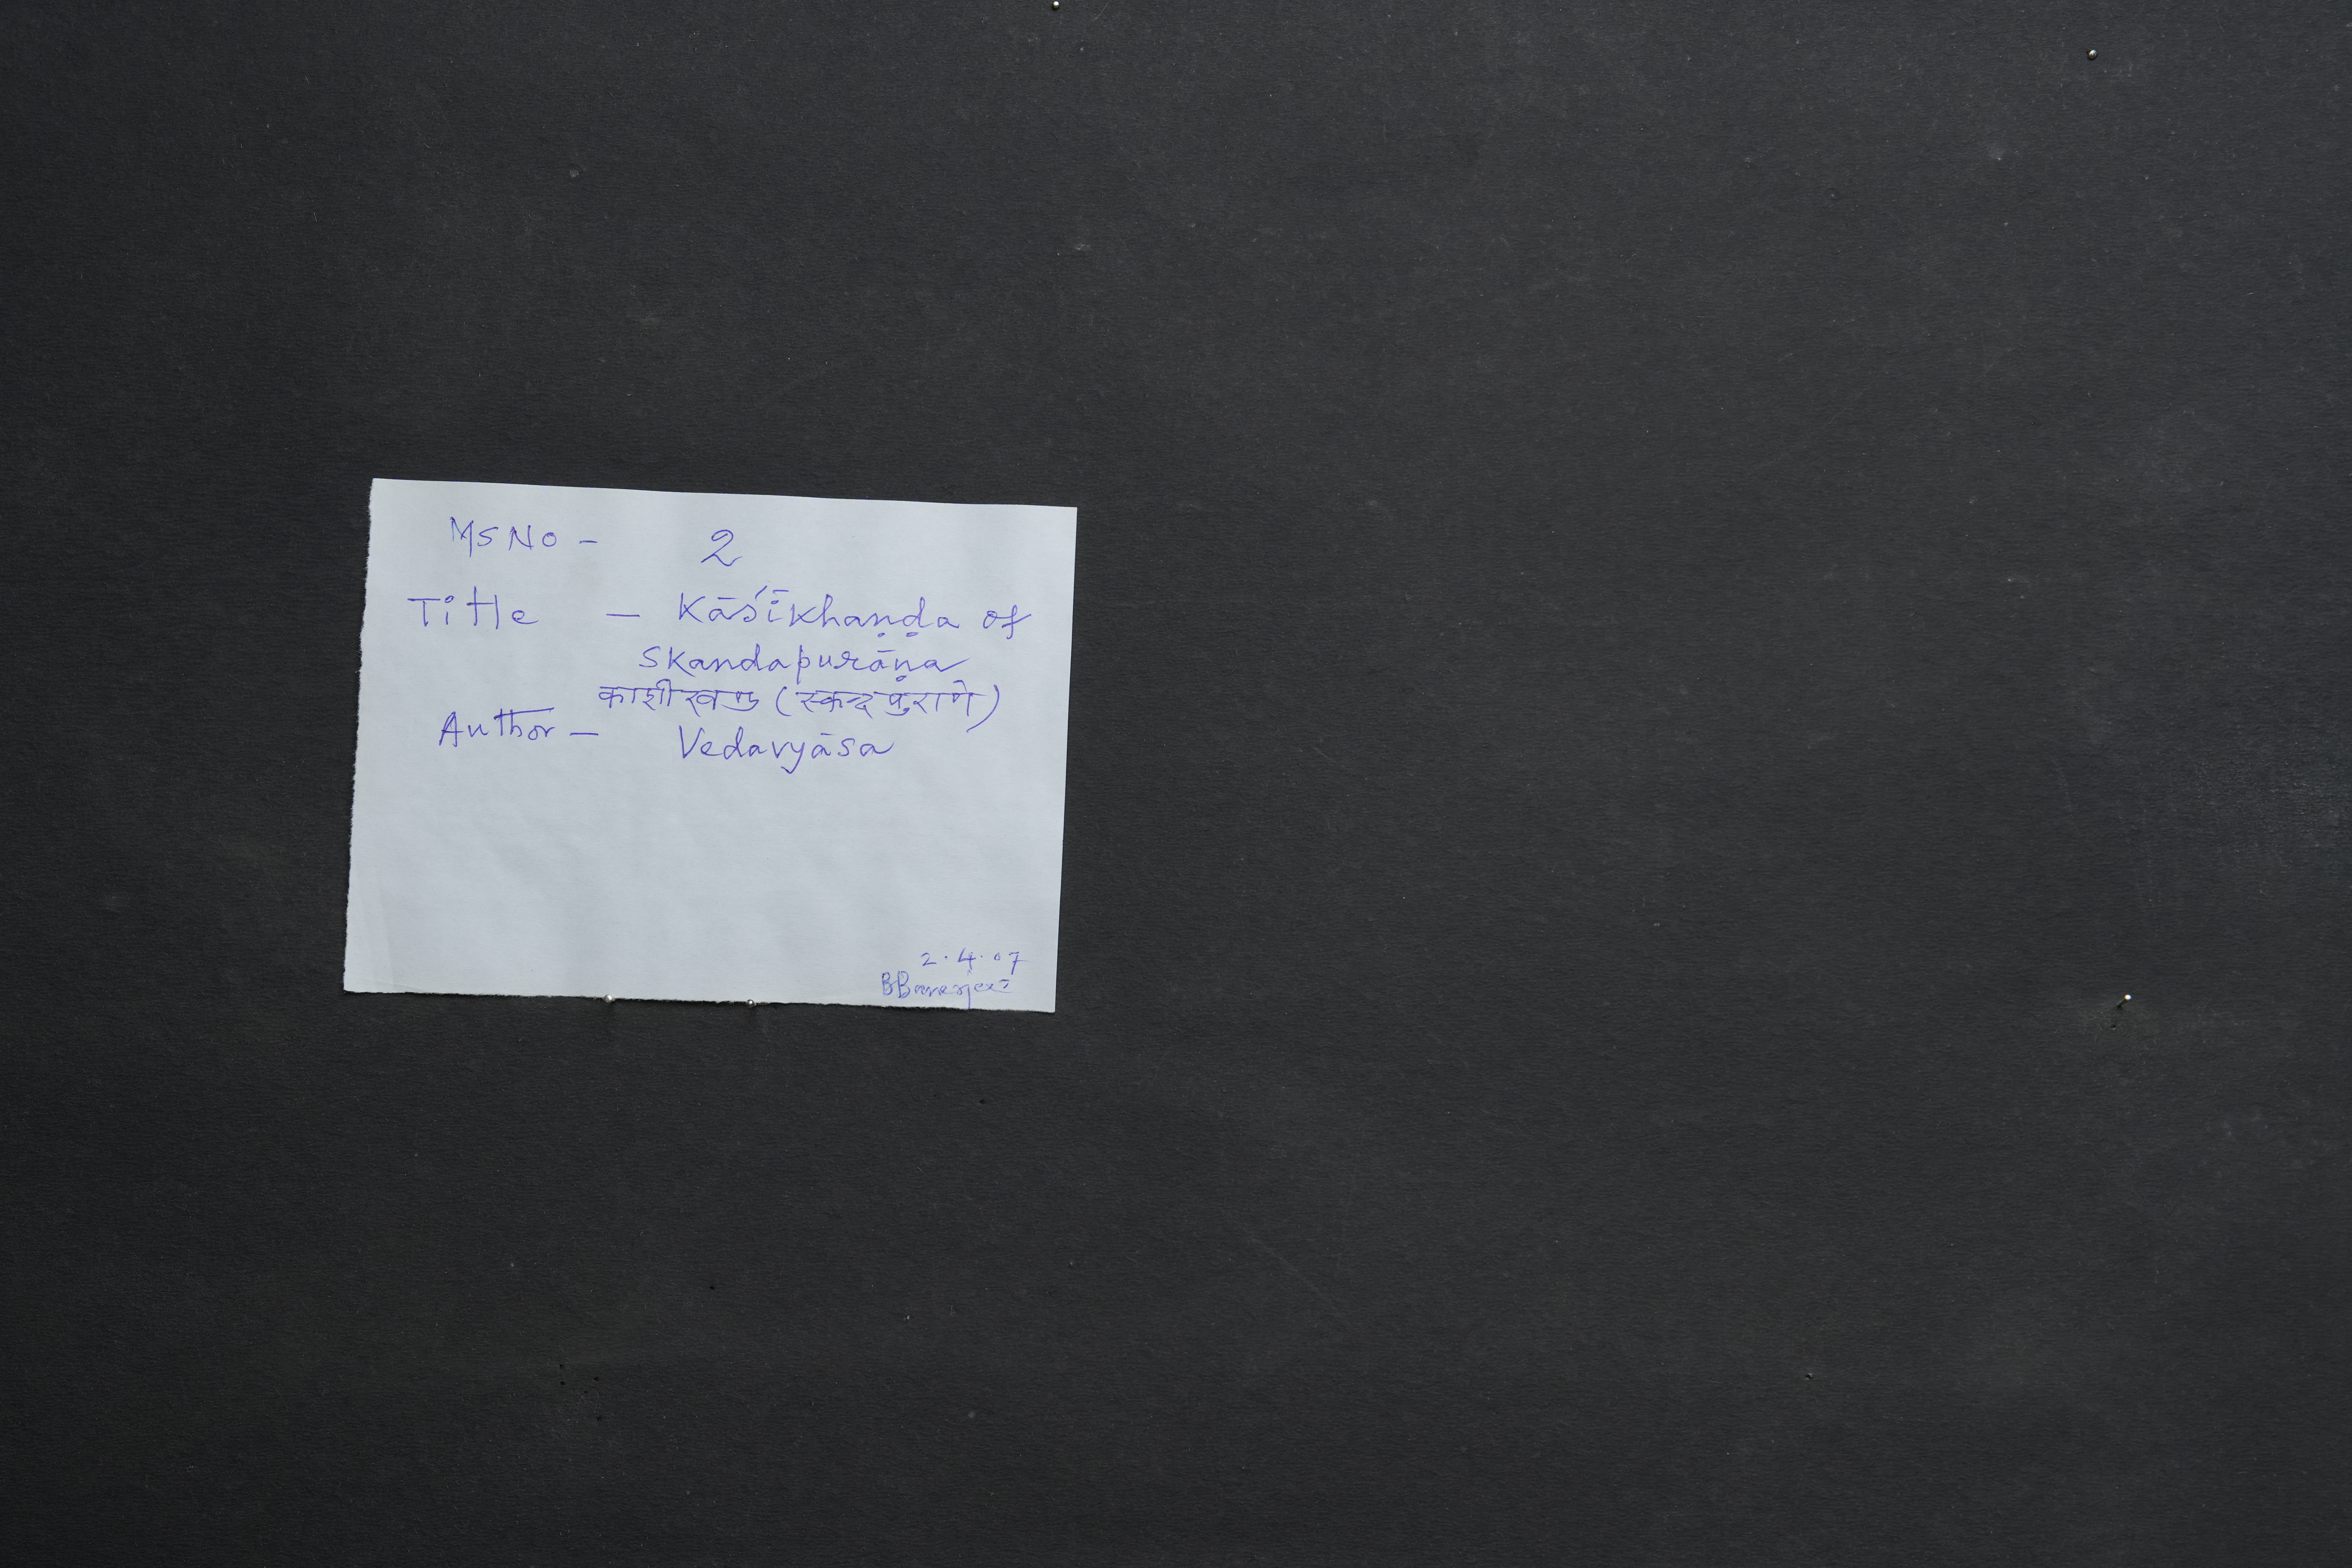 MS No - 2
Title - Kāśīkhaṇḍa of
Skandapurāṇa
काशीखण्ड (स्कन्दपुराणे)
Author - Vedavyāsa
2.4.07
BBanerjee